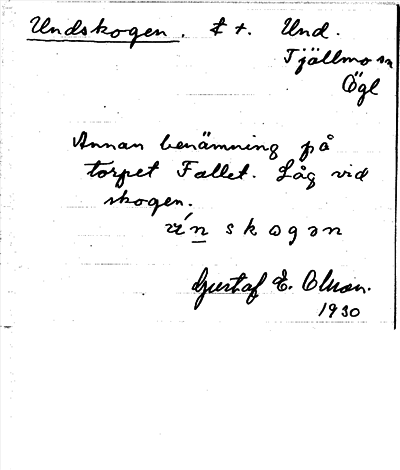 Undskogen. ł t. Und.
Tjällmo sn
Ögl
Annan benämning på
torpet Fallet. Låg vid
skogen.
skogən
Gustaf E. Olson.
1930